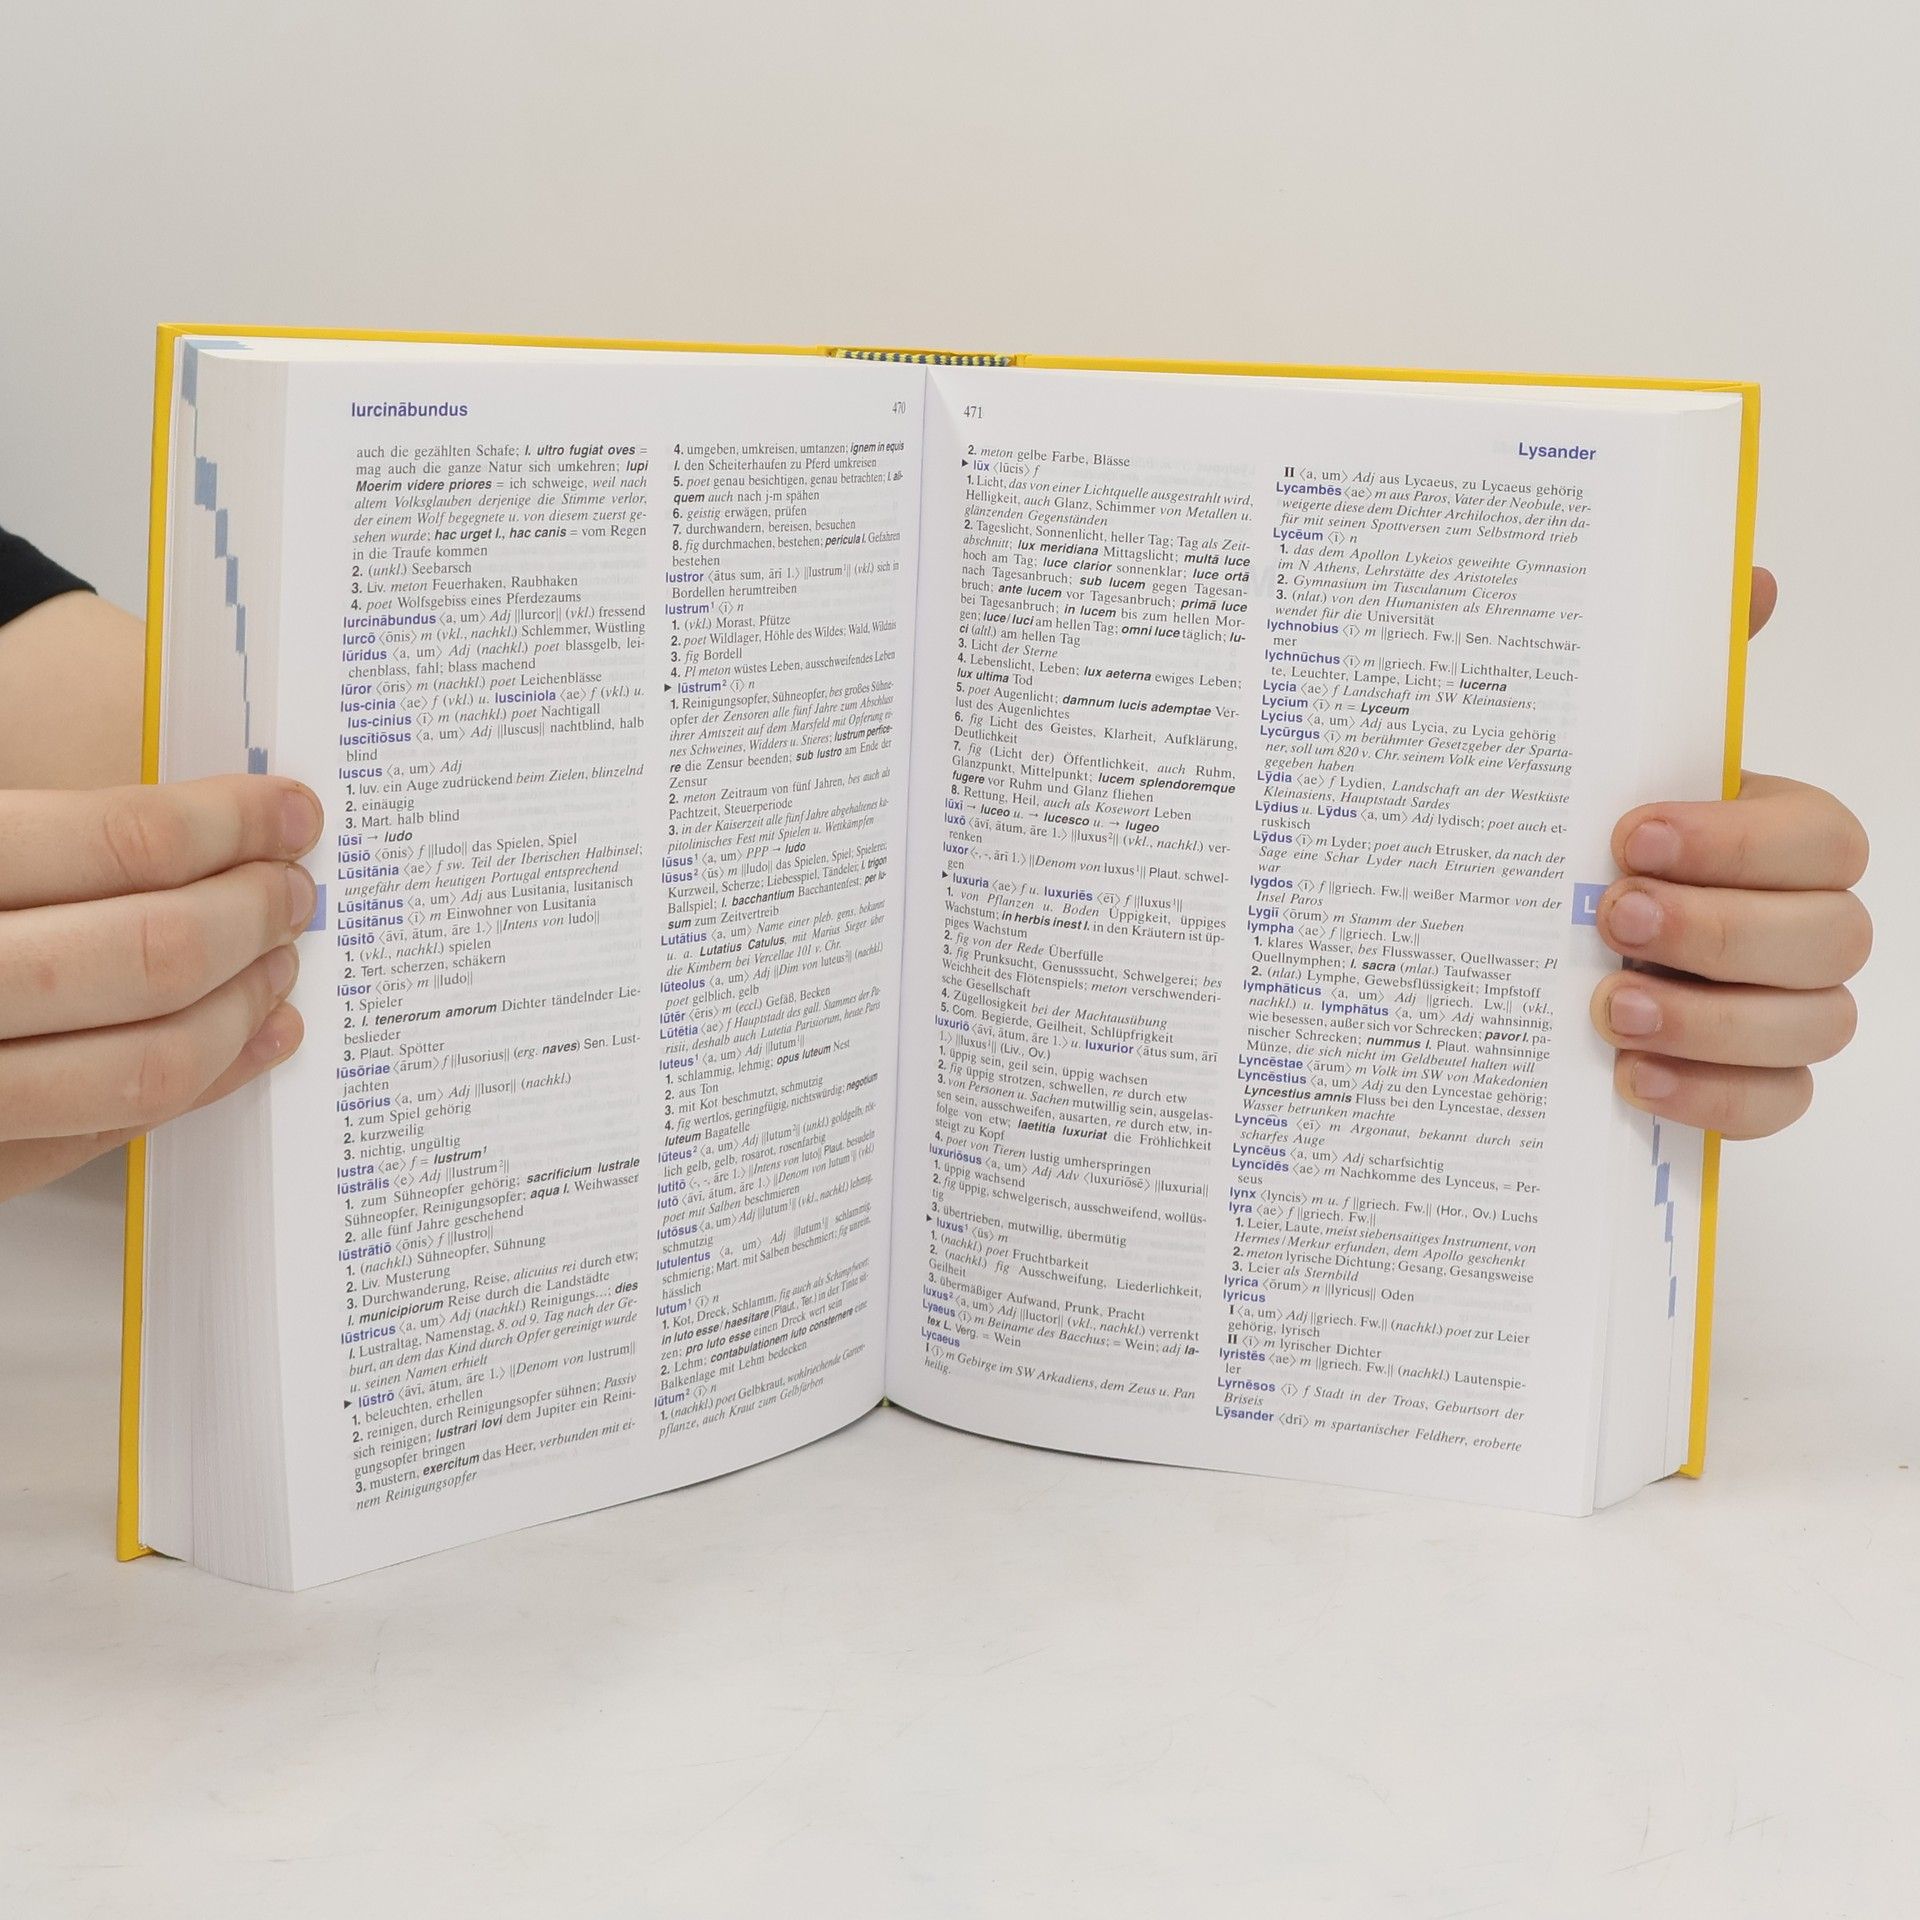 lurcinābundus
470
auch die gezählten Schafe; l. ultro fugiat oves =
mag auch die ganze Natur sich umkehren; lupi
Moerim videre priores = ich schweige, weil nach
altem Volksglauben derjenige die Stimme verlor,
der einem Wolf begegnete u. von diesem zuerst ge-
sehen wurde; hac urget l., hac canis = vom Regen
in die Traufe kommen
2. (unkl.) Seebarsch
3. Liv. meton Feuerhaken, Raubhaken
4. poet Wolfsgebiss eines Pferdezaums
lurcinābundus ⟨a, um⟩ Adj ||lurcor|| (vkl.) fressend
lurcō ⟨ōnis⟩ m (vkl., nachkl.) Schlemmer, Wüstling
lūridus ⟨a, um⟩ Adj (nachkl.) poet blassgelb, lei-
chenblass, fahl; blass machend
lūror ⟨ōris⟩ m (nachkl.) poet Leichenblässe
lus-cinia ⟨ae⟩ f (vkl.) u. lusciniola ⟨ae⟩ f (vkl.) u.
lus-cinius ⟨ī⟩ m (nachkl.) poet Nachtigall
luscitiōsus ⟨a, um⟩ Adj ||luscus|| nachtblind, halb
blind
luscus ⟨a, um⟩ Adj
1. luv. ein Auge zudrückend beim Zielen, blinzelnd
2. einäugig
3. Mart. halb blind
lūsī → ludo
lūsiō ⟨ōnis⟩ f ||ludo|| das Spielen, Spiel
Lūsitānia ⟨ae⟩ f sw. Teil der Iberischen Halbinsel;
ungefähr dem heutigen Portugal entsprechend
Lūsitānus ⟨a, um⟩ Adj aus Lusitania, lusitanisch
Lūsitānus ⟨ī⟩ m Einwohner von Lusitania
lūsitō ⟨āvī, ātum, āre 1.⟩ ||Intens von ludo||
1. (vkl., nachkl.) spielen
2. Tert. scherzen, schäkern
lūsor ⟨ōris⟩ m ||ludo||
1. Spieler
2. l. tenerorum amorum Dichter tändelnder Lie-
beslieder
3. Plaut. Spötter
lūsōriae ⟨ārum⟩ f ||lusorius|| (erg. naves) Sen. Lust-
jachten
lūsōrius ⟨a, um⟩ Adj ||lusor|| (nachkl.)
1. zum Spiel gehörig
2. kurzweilig
3. nichtig, ungültig
lustra ⟨ae⟩ f = lustrum¹
lūstrālis ⟨e⟩ Adj ||lustrum²||
1. zum Sühneopfer gehörig; sacrificium lustrale
Sühneopfer, Reinigungsopfer; aqua l. Weihwasser
2. alle fünf Jahre geschehend
lūstrātiō ⟨ōnis⟩ f ||lustro||
1. (nachkl.) Sühneopfer, Sühnung
2. Liv. Musterung
3. Durchwanderung, Reise, alicuius rei durch etw;
l. municipiorum Reise durch die Landstädte
lūstricus ⟨a, um⟩ Adj (nachkl.) Reinigungs...; dies
l. Lustraltag, Namenstag, 8. od 9. Tag nach der Ge-
burt, an dem das Kind durch Opfer gereinigt wurde
u. seinen Namen erhielt
▶ lūstrō ⟨āvī, ātum, āre 1.⟩ ||Denom von lustrum||
1. beleuchten, erhellen
2. reinigen, durch Reinigungsopfer sühnen; Passiv
sich reinigen; lustrari Iovi dem Jupiter ein Reini-
gungsopfer bringen
3. mustern, exercitum das Heer, verbunden mit ei-
nem Reinigungsopfer
4. umgeben, umkreisen, umtanzen; ignem in equis
l. den Scheiterhaufen zu Pferd umkreisen
5. poet genau besichtigen, genau betrachten; l. ali-
quem auch nach j-m spähen
6. geistig erwägen, prüfen
7. durchwandern, bereisen, besuchen
8. fig durchmachen, bestehen; pericula l. Gefahren
bestehen
lustror ⟨ātus sum, ārī 1.⟩ ||lustrum¹|| (vkl.) sich in
Bordellen herumtreiben
lustrum¹ ⟨ī⟩ n
1. (vkl.) Morast, Pfütze
2. poet Wildlager, Höhle des Wildes; Wald, Wildnis
3. fig Bordell
4. Pl meton wüstes Leben, ausschweifendes Leben
▶ lūstrum² ⟨ī⟩ n
1. Reinigungsopfer, Sühneopfer, bes großes Sühne-
opfer der Zensoren alle fünf Jahre zum Abschluss
ihrer Amtszeit auf dem Marsfeld mit Opferung ei-
nes Schweines, Widders u. Stieres; lustrum perfice-
re die Zensur beenden; sub lustro am Ende der
Zensur
2. meton Zeitraum von fünf Jahren, bes auch als
Pachtzeit, Steuerperiode
3. in der Kaiserzeit alle fünf Jahre abgehaltenes ka-
pitolinisches Fest mit Spielen u. Wettkämpfen
lūsus¹ ⟨a, um⟩ PPP → ludo
lūsus² ⟨ūs⟩ m ||ludo|| das Spielen, Spiel; Spielerei;
Kurzweil, Scherze; Liebesspiel, Tändelei; l. trigon
Ballspiel; l. bacchantium Bacchantenfest; per lu-
sum zum Zeitvertreib
Lutātius ⟨a, um⟩ Name einer pleb. gens, bekannt
u. a. Lutatius Catulus, mit Marius Sieger über
die Kimbern bei Vercellae 101 v. Chr.
lūteolus ⟨a, um⟩ Adj ||Dim von luteus²|| (nachkl.)
poet gelblich, gelb
lūtēr ⟨ēris⟩ m (eccl.) Gefäß, Becken
Lūtētia ⟨ae⟩ f Hauptstadt des gall. Stammes der Pa-
risii, deshalb auch Lutetia Parisiorum, heute Paris
luteus¹ ⟨a, um⟩ Adj ||lutum¹||
1. schlammig, lehmig; opus luteum Nest
2. aus Ton
3. mit Kot beschmutzt, schmutzig
4. fig wertlos, geringfügig, nichtswürdig; negotium
luteum Bagatelle
lūteus² ⟨a, um⟩ Adj ||lutum²|| (unkl.) goldgelb, röt-
lich gelb, gelb, rosarot, rosenfarbig
lutitō ⟨-, -, āre 1.⟩ ||Intens von luto|| Plaut. besudeln
lutō ⟨āvī, ātum, āre 1.⟩ ||Denom von lutum¹|| (vkl.)
poet mit Salben beschmieren
lutōsus ⟨a, um⟩ Adj ||lutum¹|| (vkl., nachkl.) lehmig,
schmutzig
lutulentus ⟨a, um⟩ Adj ||lutum¹|| schlammig,
schmierig; Mart. mit Salben beschmiert; fig unrein,
hässlich
lutum¹ ⟨ī⟩ n
1. Kot, Dreck, Schlamm, fig auch als Schimpfwort;
in luto esse/haesitare (Plaut., Ter.) in der Tinte sit-
zen; pro luto esse einen Dreck wert sein
2. Lehm; contabulationem luto consternere eine
Balkenlage mit Lehm bedecken
lūtum² ⟨ī⟩ n
1. (nachkl.) poet Gelbkraut, wohlriechende Garten-
pflanze, auch Kraut zum Gelbfärben
471
Lysander
2. meton gelbe Farbe, Blässe
▶ lūx ⟨lūcis⟩ f
1. Licht, das von einer Lichtquelle ausgestrahlt wird,
Helligkeit, auch Glanz, Schimmer von Metallen u.
glänzenden Gegenständen
2. Tageslicht, Sonnenlicht, heller Tag; Tag als Zeit-
abschnitt; lux meridiana Mittagslicht; multā luce
hoch am Tag; luce clarior sonnenklar; luce ortā
nach Tagesanbruch; sub lucem gegen Tagesan-
bruch; ante lucem vor Tagesanbruch; primā luce
bei Tagesanbruch; in lucem bis zum hellen Mor-
gen; luce/luci am hellen Tag; omni luce täglich; lu-
ci (altl.) am hellen Tag
3. Licht der Sterne
4. Lebenslicht, Leben; lux aeterna ewiges Leben;
lux ultima Tod
5. poet Augenlicht; damnum lucis ademptae Ver-
lust des Augenlichtes
6. fig Licht des Geistes, Klarheit, Aufklärung,
Deutlichkeit
7. fig (Licht der) Öffentlichkeit, auch Ruhm,
Glanzpunkt, Mittelpunkt; lucem splendoremque
fugere vor Ruhm und Glanz fliehen
8. Rettung, Heil, auch als Kosewort Leben
lūxī → luceo u. → lucesco u. → lugeo
luxō ⟨āvī, ātum, āre 1.⟩ ||luxus²|| (vkl., nachkl.) ver-
renken
luxor ⟨-, -, ārī 1.⟩ ||Denom von luxus¹|| Plaut. schwel-
gen
▶ luxuria ⟨ae⟩ f u. luxuriēs ⟨ēī⟩ f ||luxus¹||
1. von Pflanzen u. Boden Üppigkeit, üppiges
Wachstum; in herbis inest l. in den Kräutern ist üp-
piges Wachstum
2. fig von der Rede Überfülle
3. fig Prunksucht, Genusssucht, Schwelgerei; bes
Weichheit des Flötenspiels; meton verschwenderi-
sche Gesellschaft
4. Zügellosigkeit bei der Machtausübung
5. Com. Begierde, Geilheit, Schlüpfrigkeit
luxuriō ⟨āvī, ātum, āre 1.⟩ u. luxurior ⟨ātus sum, ārī
1.⟩ ||luxus¹|| (Liv., Ov.)
1. üppig sein, geil sein, üppig wachsen
2. fig üppig strotzen, schwellen, re durch etw
3. von Personen u. Sachen mutwillig sein, ausgelas-
sen sein, ausschweifen, ausarten, re durch etw, in-
folge von etw; laetitia luxuriat die Fröhlichkeit
steigt zu Kopf
4. poet von Tieren lustig umherspringen
luxuriōsus ⟨a, um⟩ Adj Adv ⟨luxuriōsē⟩ ||luxuria||
1. üppig wachsend
2. fig üppig, schwelgerisch, ausschweifend, wollüs-
tig
3. übertrieben, mutwillig, übermütig
▶ luxus¹ ⟨ūs⟩ m
1. (nachkl.) poet Fruchtbarkeit
2. (nachkl.) fig Ausschweifung, Liederlichkeit,
Geilheit
3. übermäßiger Aufwand, Prunk, Pracht
luxus² ⟨a, um⟩ Adj ||luctor|| (vkl., nachkl.) verrenkt
Lyaeus ⟨ī⟩ m Beiname des Bacchus; = Wein; adj la-
tex L. Verg. = Wein
Lycaeus
I ⟨ī⟩ m Gebirge im SW Arkadiens, dem Zeus u. Pan
heilig.
II ⟨a, um⟩ Adj aus Lycaeus, zu Lycaeus gehörig
Lycambēs ⟨ae⟩ m aus Paros, Vater der Neobule, ver-
weigerte diese dem Dichter Archilochos, der ihn da-
für mit seinen Spottversen zum Selbstmord trieb
Lycēum ⟨ī⟩ n
1. das dem Apollon Lykeios geweihte Gymnasion
im N Athens, Lehrstätte des Aristoteles
2. Gymnasium im Tusculanum Ciceros
3. (nlat.) von den Humanisten als Ehrenname ver-
wendet für die Universität
lychnobius ⟨ī⟩ m ||griech. Fw.|| Sen. Nachtschwär-
mer
lychnūchus ⟨ī⟩ m ||griech. Fw.|| Lichthalter, Leuch-
te, Leuchter, Lampe, Licht; = lucerna
Lycia ⟨ae⟩ f Landschaft im SW Kleinasiens;
Lycīum ⟨ī⟩ n = Lyceum
Lycius ⟨a, um⟩ Adj aus Lycia, zu Lycia gehörig
Lycūrgus ⟨ī⟩ m berühmter Gesetzgeber der Sparta-
ner, soll um 820 v. Chr. seinem Volk eine Verfassung
gegeben haben
Lȳdia ⟨ae⟩ f Lydien, Landschaft an der Westküste
Kleinasiens, Hauptstadt Sardes
Lȳdius u. Lȳdus ⟨a, um⟩ Adj lydisch; poet auch et-
ruskisch
Lȳdus ⟨ī⟩ m Lyder; poet auch Etrusker, da nach der
Sage eine Schar Lyder nach Etrurien gewandert
war
lygdos ⟨ī⟩ f ||griech. Fw.|| weißer Marmor von der
Insel Paros
Lygiī ⟨ōrum⟩ m Stamm der Sueben
lympha ⟨ae⟩ f ||griech. Lw.||
1. klares Wasser, bes Flusswasser, Quellwasser; Pl
Quellnymphen; l. sacra (mlat.) Taufwasser
2. (nlat.) Lymphe, Gewebsflüssigkeit; Impfstoff
lymphāticus ⟨a, um⟩ Adj ||griech. Lw.|| (vkl.,
nachkl.) u. lymphātus ⟨a, um⟩ Adj wahnsinnig,
wie besessen, außer sich vor Schrecken; pavor l. pa-
nischer Schrecken; nummus l. Plaut. wahnsinnige
Münze, die sich nicht im Geldbeutel halten will
Lyncēstae ⟨ārum⟩ m Volk im SW von Makedonien
Lyncēstius ⟨a, um⟩ Adj zu den Lyncestae gehörig;
Lyncestius amnis Fluss bei den Lyncestae, dessen
Wasser betrunken machte
Lynceūs ⟨eī⟩ m Argonaut, bekannt durch sein
scharfes Auge
Lyncēus ⟨a, um⟩ Adj scharfsichtig
Lyncīdēs ⟨ae⟩ m Nachkomme des Lynceus, = Per-
seus
lynx ⟨lyncis⟩ m u. f ||griech. Fw.|| (Hor., Ov.) Luchs
lyra ⟨ae⟩ f ||griech. Fw.||
1. Leier, Laute, meist siebensaitiges Instrument, von
Hermes/Merkur erfunden, dem Apollo geschenkt
2. meton lyrische Dichtung; Gesang, Gesangsweise
3. Leier als Sternbild
lyrica ⟨ōrum⟩ n ||lyricus|| Oden
lyricus
I ⟨a, um⟩ Adj ||griech. Fw.|| (nachkl.) poet zur Leier
gehörig, lyrisch
II ⟨ī⟩ m lyrischer Dichter
lyristēs ⟨ae⟩ m ||griech. Fw.|| (nachkl.) Lautenspie-
ler
Lyrnēsos ⟨ī⟩ f Stadt in der Troas, Geburtsort der
Briseis
Lȳsander ⟨drī⟩ m spartanischer Feldherr, eroberte
L